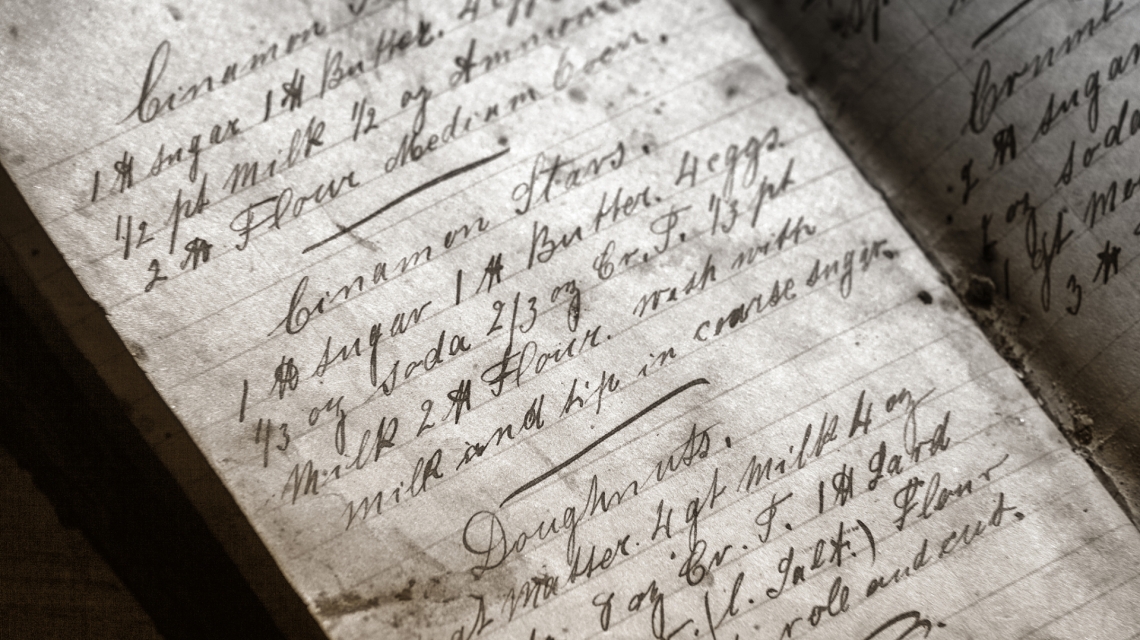 Cinamon
1 ℔ sugar 1 ℔ Butter. 4 eggs
1/2 pt Milk 1/2 oz Ammonia
2 ℔ Flour Medium Coon.
Cinamon Stars.
1 ℔ sugar 1 ℔ Butter. 4 eggs.
1/3 oz soda 2/3 oz Cr. T. 1/3 pt
Milk 2 ℔ Flour. wash with
milk and dip in coarse sugar.
Doughnuts.
Matter. 4 qt Milk 4 oz
8 oz Cr. T. 1 ℔ Lard
(l. Salt.) Flour
role and cut.
sugar
soda
1 qt
3 ℔